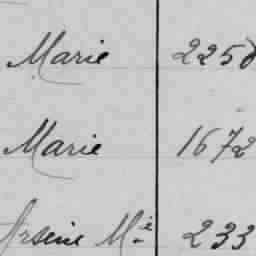 Marie 2250
Marie 1672
Arsene Mie 233